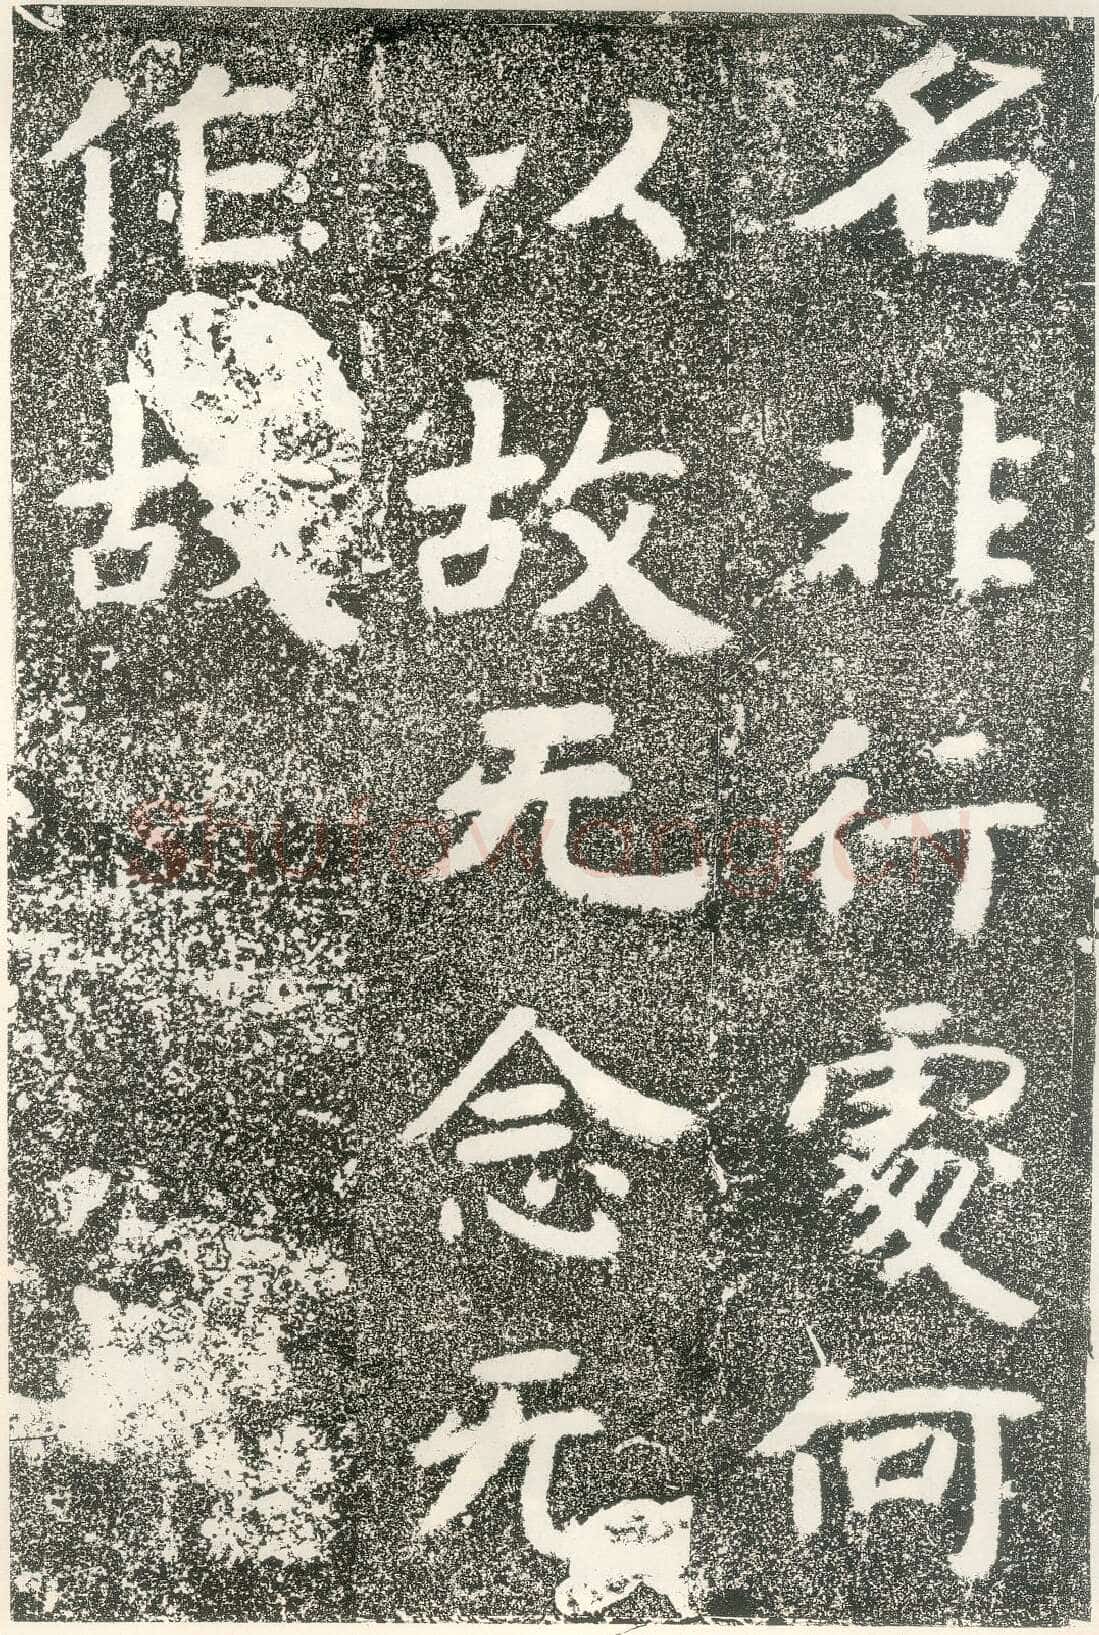 名非行處何
以故无念无
作故
Shufawang.CN